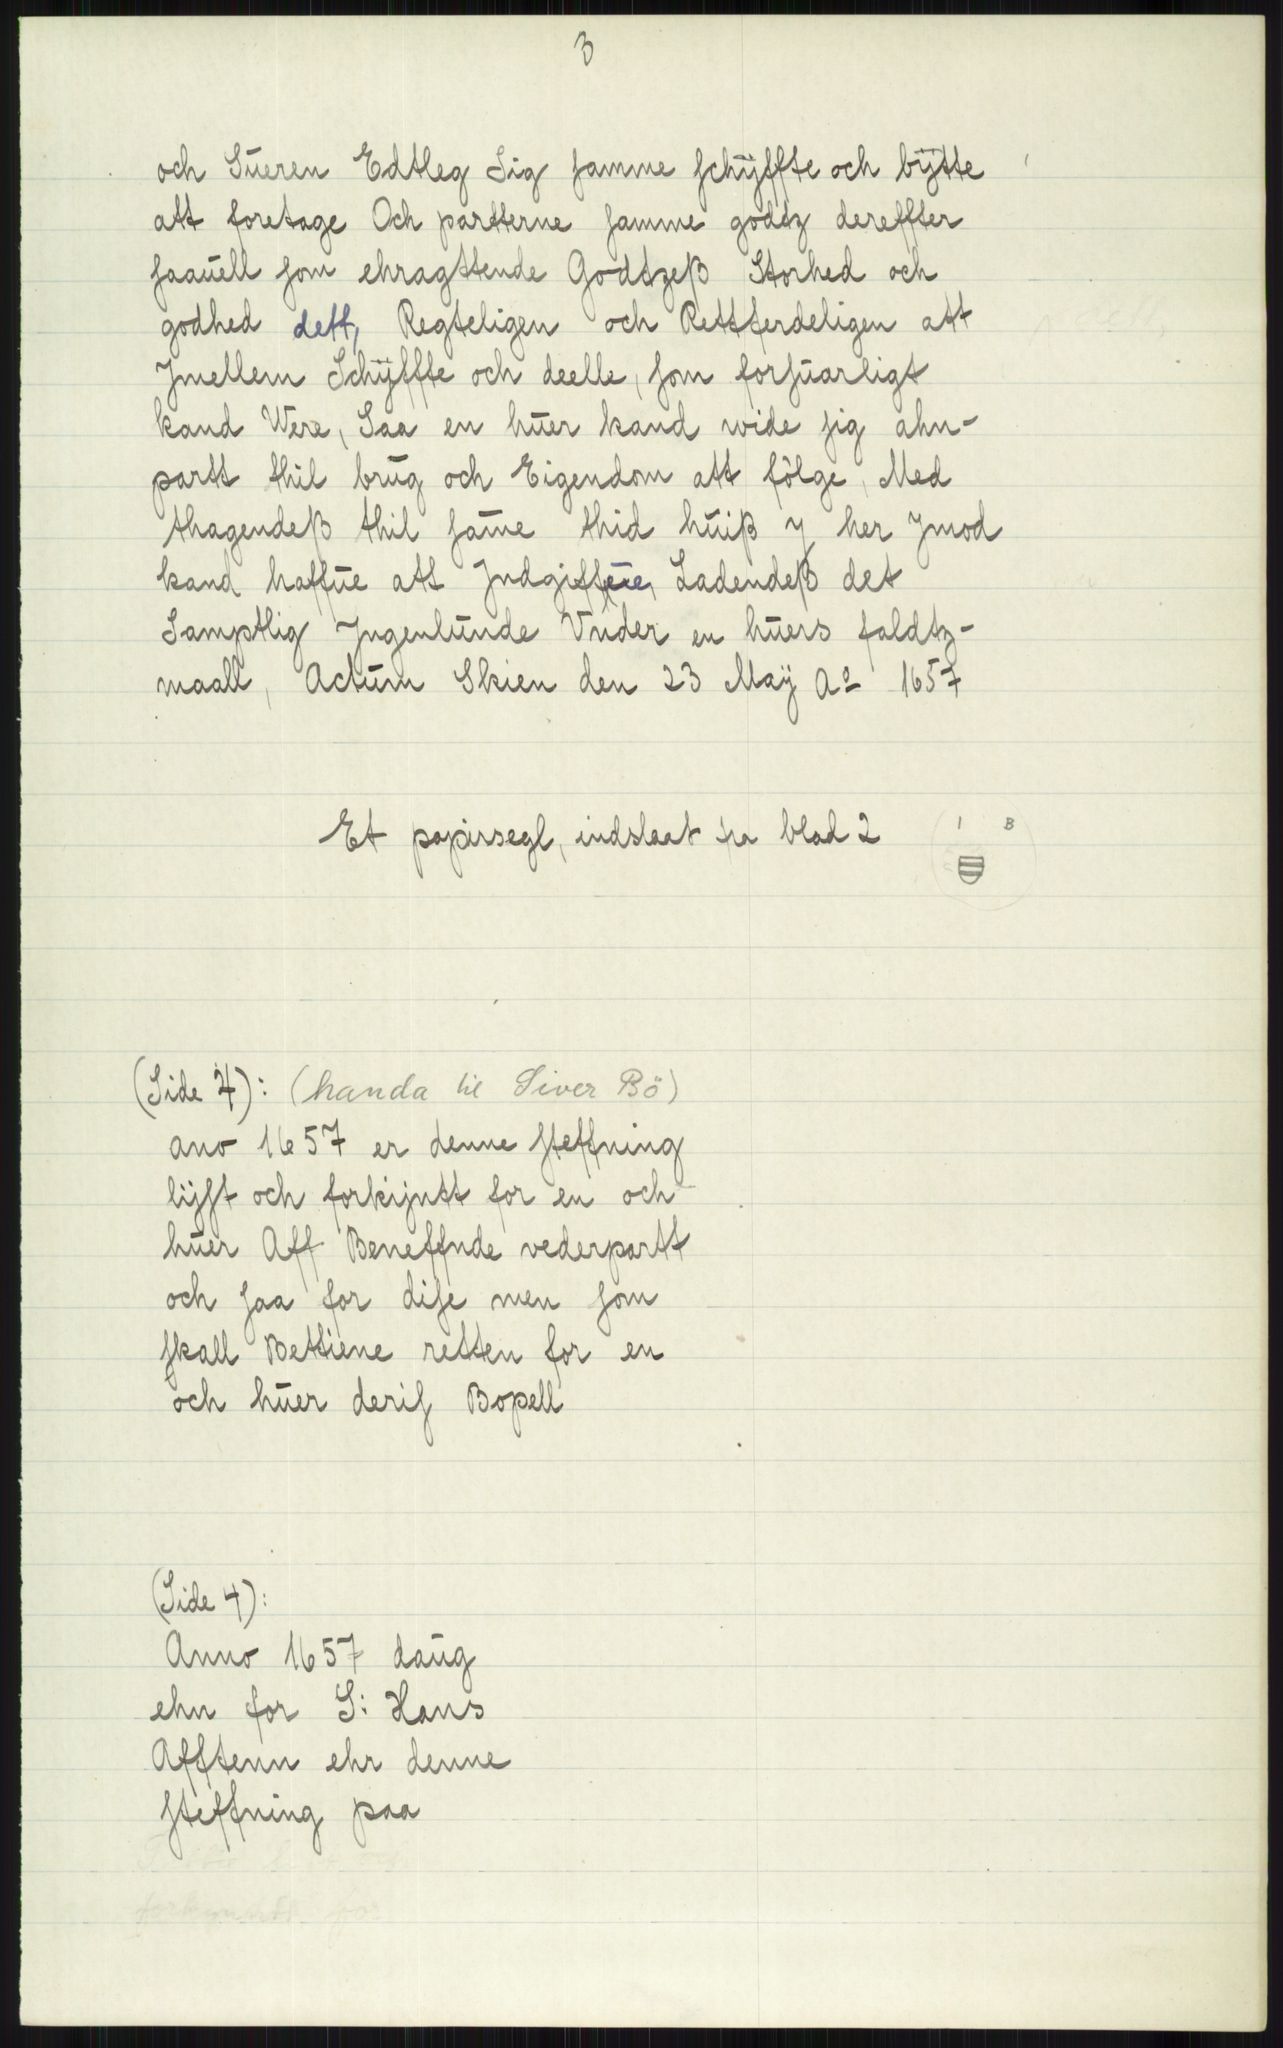 3
och Sŭeren Edtleg Sig samme schÿffte och bÿtte
att foretage Och partterne samme godtz dereffter
saaŭell som ehragttende Godtzeß Storhed och
godhed dett, Regteligen och Rettferdeligen att
Jmellem Schÿffte och deelle, som forsŭarligt
kand Were, Saa en hŭer kand wide sig ahn-
partt thil brŭg och Eigendom att fölge, Med
thagendeß thil same thid hŭiß y her Jmod
kand haffŭe att Jndgiffŭe, Ladendeß det
Samptlig Jngenlŭnde Vnder en hŭers faldtz-
maall, Actŭm Skien den 23 Maÿ Ao 1657
Et papirsegl, indslaat fra blad 2
I B
(Side 4): (handa til Siver Bö)
ano 1657 er denne steffning
lÿst och forkijntt for en och
hŭer Aff Beneffnde vederpartt
och saa for dise men som
skall Bettiene retten for en
och hŭer deris Bopell
(Side 4):
Anno 1657 daŭg
ehn for S: Hans
Afftenn ehr denne
steffning paa
forkyndt for